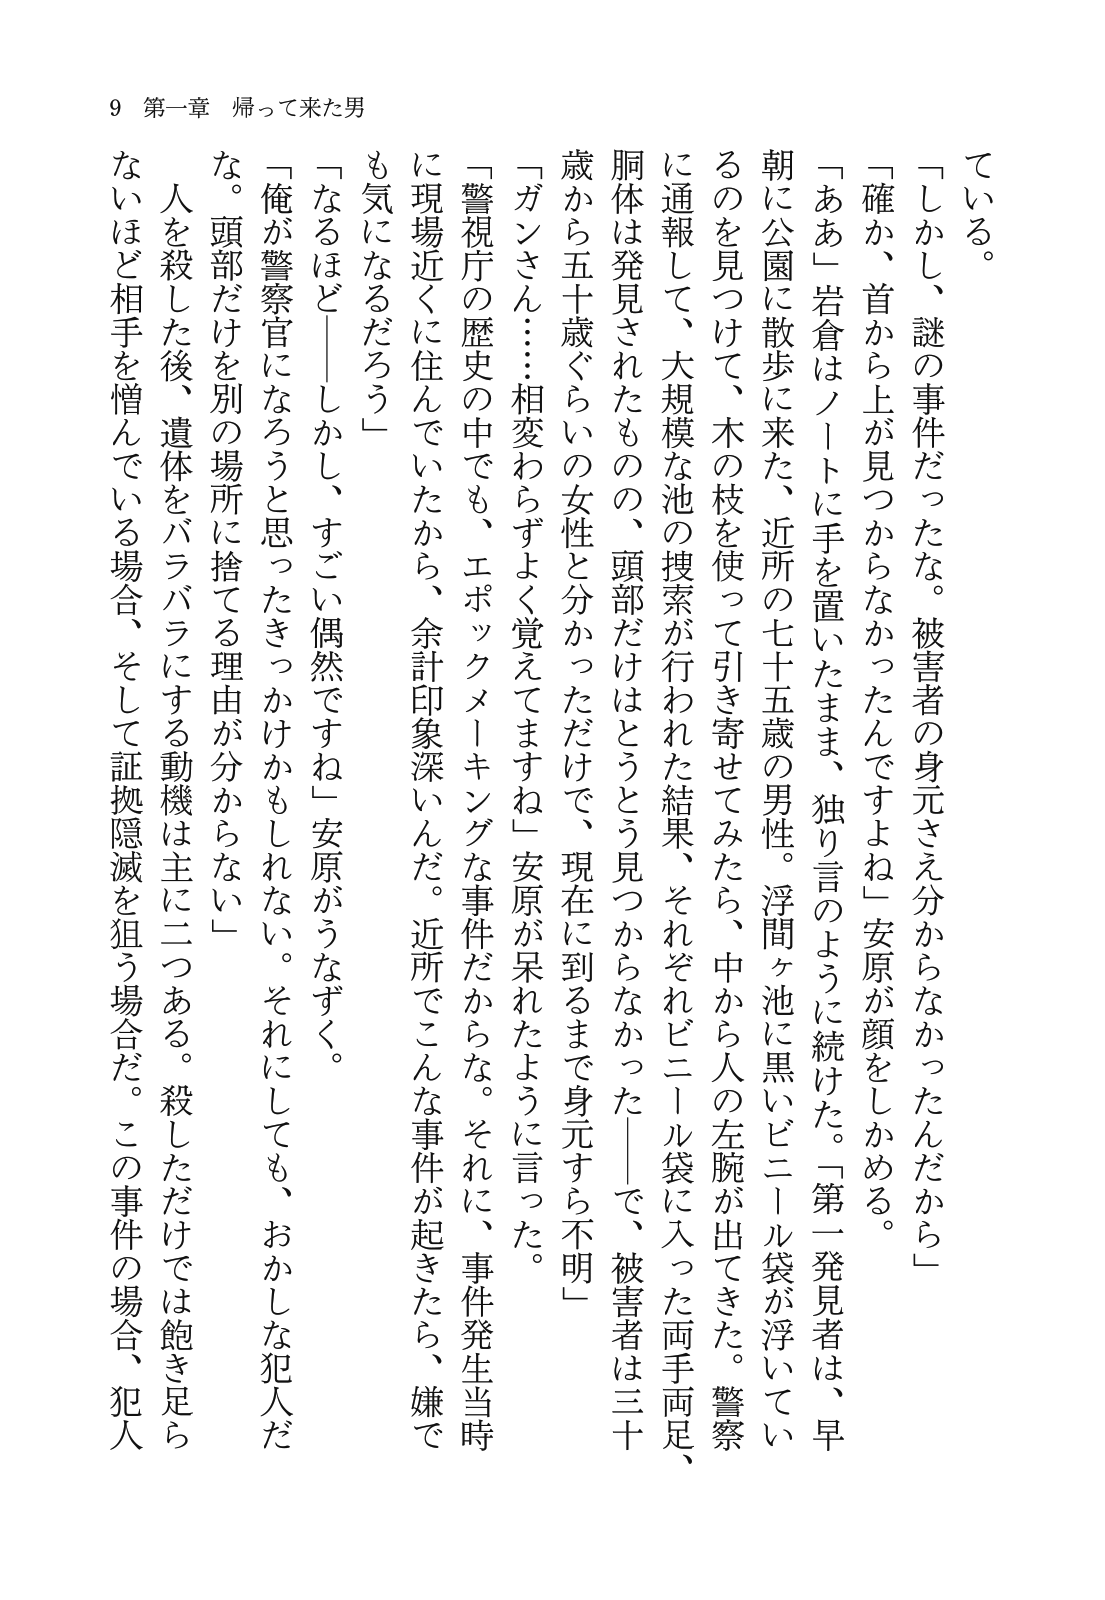 9　第一章　帰って来た男
ている。
「しかし、謎の事件だったな。被害者の身元さえ分からなかったんだから」
「確か、首から上が見つからなかったんですよね」安原が顔をしかめる。
「ああ」岩倉はノートに手を置いたまま、独り言のように続けた。「第一発見者は、早
朝に公園に散歩に来た、近所の七十五歳の男性。浮間ヶ池に黒いビニール袋が浮いてい
るのを見つけて、木の枝を使って引き寄せてみたら、中から人の左腕が出てきた。警察
に通報して、大規模な池の捜索が行われた結果、それぞれビニール袋に入った両手両足、
胴体は発見されたものの、頭部だけはとうとう見つからなかった――で、被害者は三十
歳から五十歳ぐらいの女性と分かっただけで、現在に到るまで身元すら不明」
「ガンさん……相変わらずよく覚えてますね」安原が呆れたように言った。
「警視庁の歴史の中でも、エポックメーキングな事件だからな。それに、事件発生当時
に現場近くに住んでいたから、余計印象深いんだ。近所でこんな事件が起きたら、嫌で
も気になるだろう」
「なるほど――しかし、すごい偶然ですね」安原がうなずく。
「俺が警察官になろうと思ったきっかけかもしれない。それにしても、おかしな犯人だ
な。頭部だけを別の場所に捨てる理由が分からない」
　人を殺した後、遺体をバラバラにする動機は主に二つある。殺しただけでは飽き足ら
ないほど相手を憎んでいる場合、そして証拠隠滅を狙う場合だ。この事件の場合、犯人